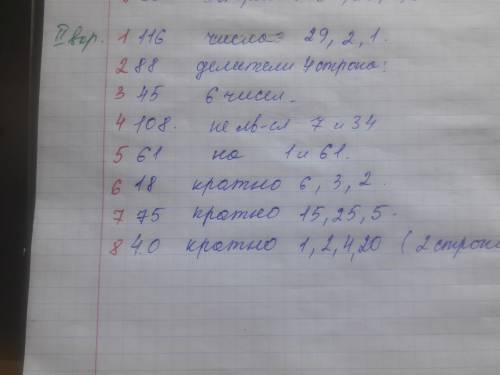 II вар. 1 116 число = 29, 2, 1.
2 88 делители 4 строка:
3 45 6 чисел.
4 108. не яв-ся 7 и 34
5 61 на 1 и 61.
6 18 кратно 6, 3, 2.
7 75 кратно 15, 25, 5.
8 40 кратно 1, 2, 4, 20 (2 строка